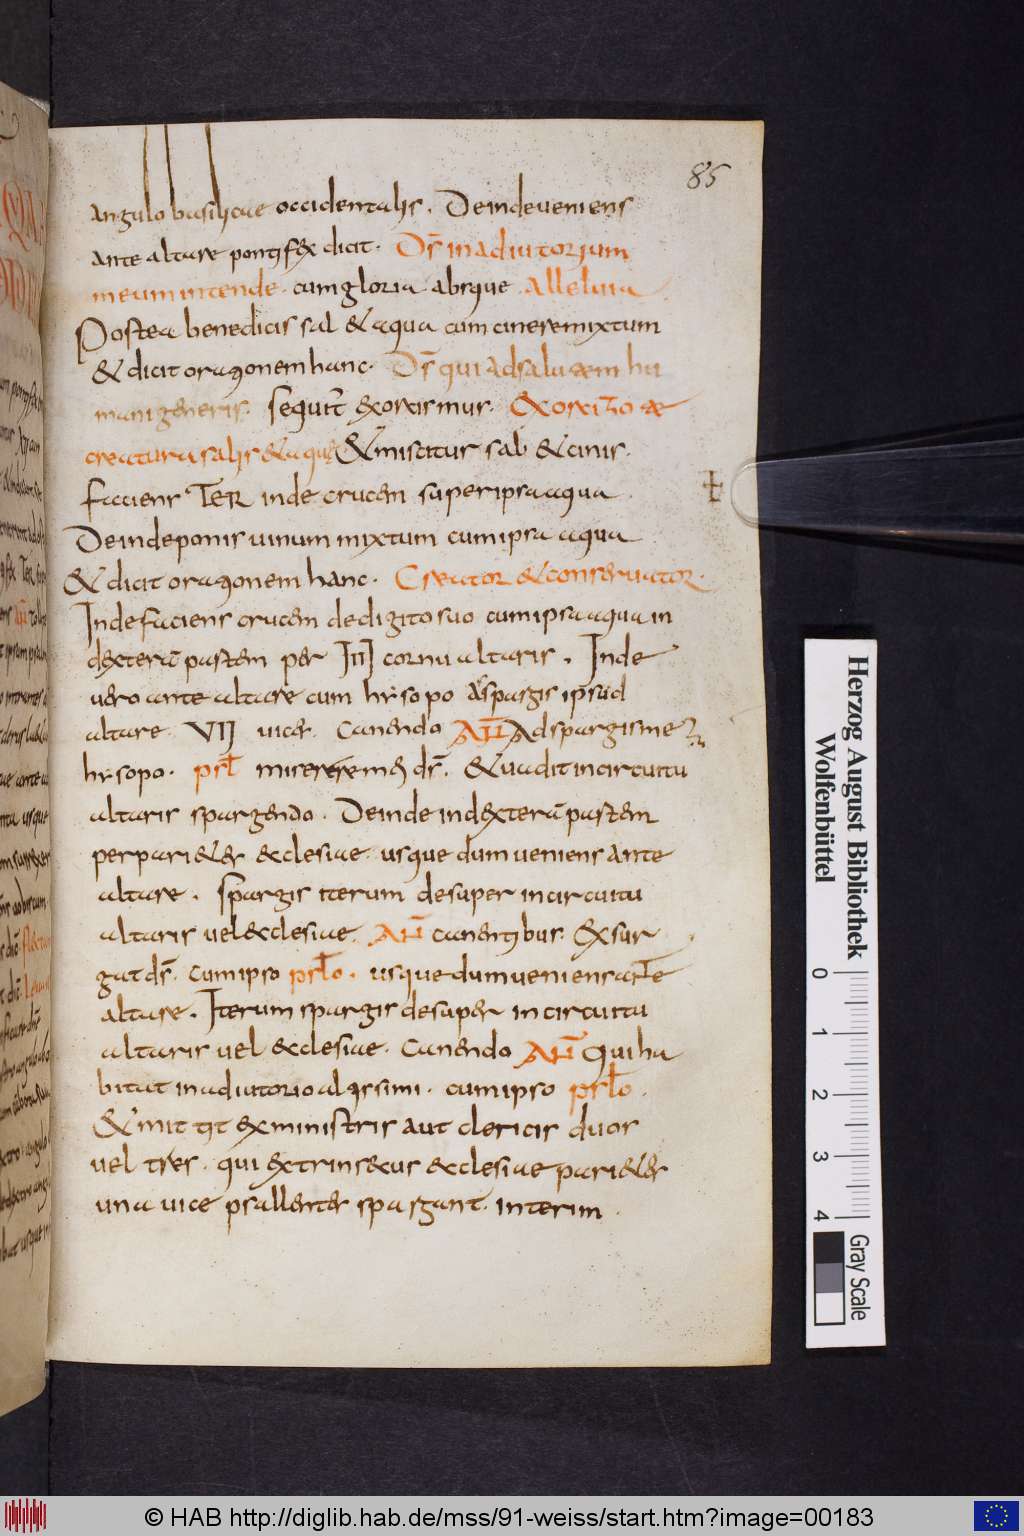 85
angulo basilicae occidentalis. Deinde veniens
ante altare pontifex dicit. Ds̄ in adiutorium
meum intende. cum gloria absque. Alleluia
Postea benedicis sal & aqua cum cinere mixtum
& dicit orationem hanc. Ds̄ qui ad salutem hu
mani generis. sequit̄ exorcismus. Exorcizo te
creatura salis & aquę & miscitur sal & cinis.
faciens TER inde crucem super ipsa aqua.
Deinde ponis uinum mixtum cum ipsa aqua
& dicit orationem hanc. Creator & conseruator.
Inde faciens crucem de digito suo cum ipsa aqua in
dexterā partem per IIII cornu altaris. Inde
uero ante altare cum hysopo aspargis ipsud
altare. VII uices. Canendo AN̄ Adspargis me
hysopo. psl̄ miserere mei ds̄. & uadit in circuitu
altaris spargendo. Deinde in dexterā partem
per pari&es ecclesiae. usque dum veniens ante
altare. spargis iterum desuper in circuitu
altaris vel ecclesiae. AN̄ canentibus. Exsur
gat ds̄. cum ipso psl̄o. usque dum veniens ante
altare. Iterum spargis desuper in circuitu
altaris vel ecclesiae. Canendo AN̄ Qui ha
bitat in adiutorio altissimi. cum ipso psl̄o.
& mittit ex ministris aut clericis duos
vel tres. qui extrinsecus ecclesiae pari&es
una vice psallentes spargant. interim.
Herzog August Bibliothek
Wolfenbüttel
0 1 2 3 4
Gray Scale
© HAB http://diglib.hab.de/mss/91-weiss/start.htm?image=00183